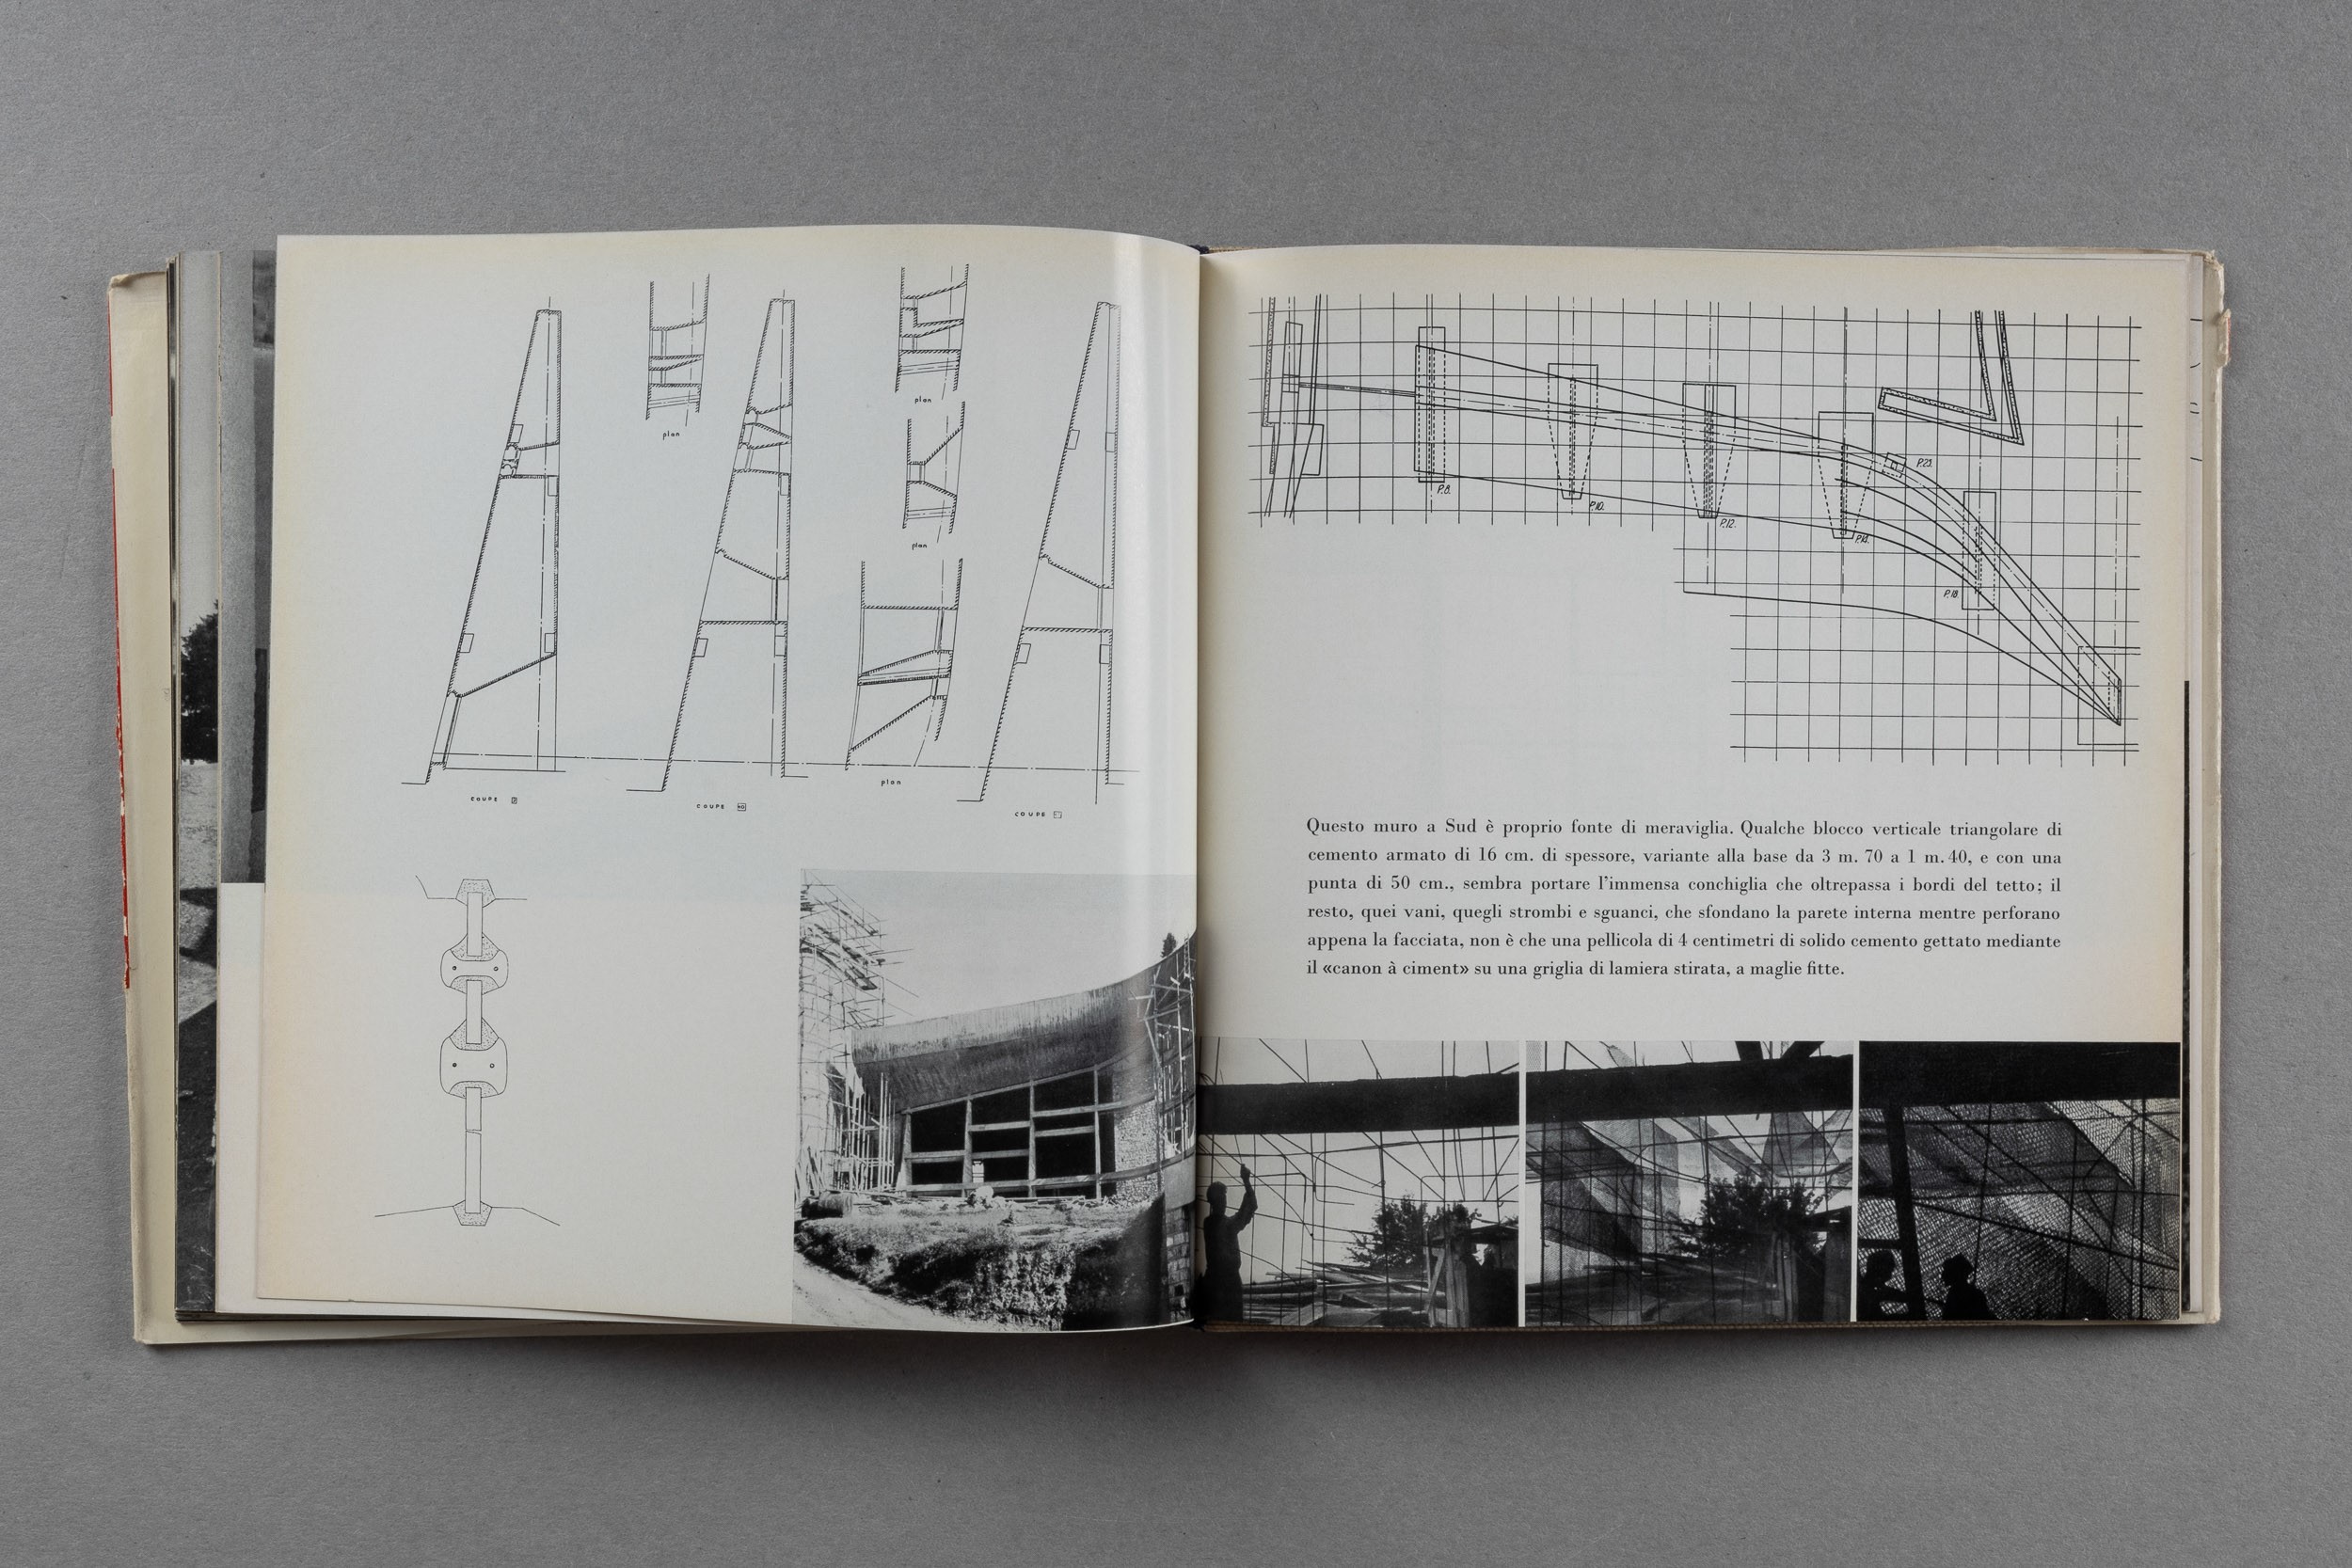 plan
plan
plan
plan
COUPE
COUPE
COUPE
P.8.
P.10.
P.12.
P.14.
P.18.
P.23.
Questo muro a Sud è proprio fonte di meraviglia. Qualche blocco verticale triangolare di
cemento armato di 16 cm. di spessore, variante alla base da 3 m. 70 a 1 m. 40, e con una
punta di 50 cm., sembra portare l’immensa conchiglia che oltrepassa i bordi del tetto; il
resto, quei vani, quegli strombi e sguanci, che sfondano la parete interna mentre perforano
appena la facciata, non è che una pellicola di 4 centimetri di solido cemento gettato mediante
il «canon à ciment» su una griglia di lamiera stirata, a maglie fitte.